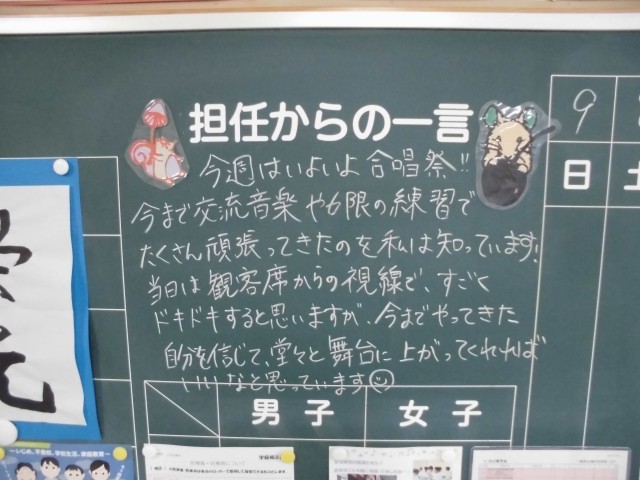 担任からの一言
今週はいよいよ合唱祭!!
今まで交流音楽や6限の練習で
たくさん頑張ってきたのを私は知っています!
当日は観客席からの視線で、すごく
ドキドキすると思いますが、今までやってきた
自分を信じて、堂々と舞台に上がってくれれば
いいなと思っています☺
9
日
土
男子
女子
～いじめ、不登校、学校生活、家庭教育～